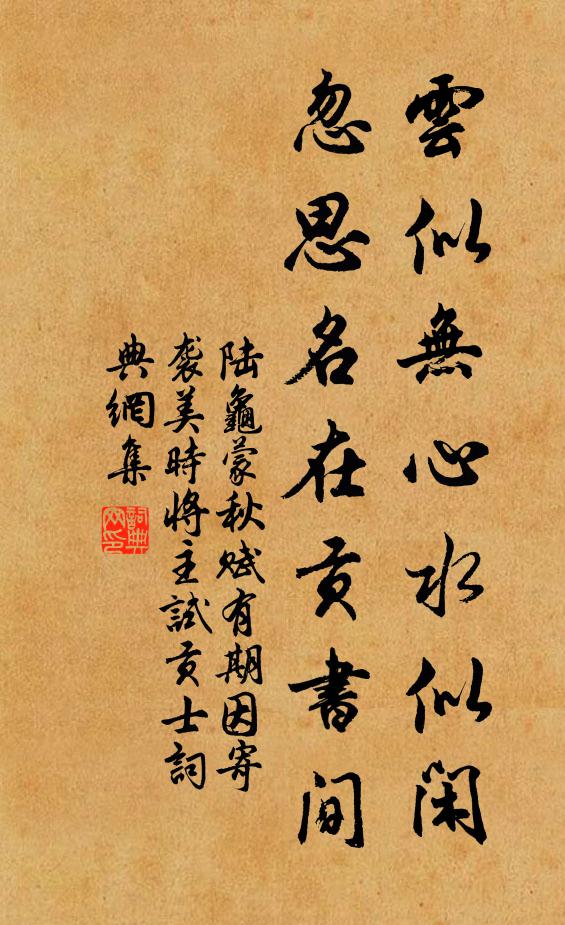 雲似無心水似閑
忽思名在貢書間
陸龜蒙秋賦有期因寄
襲美時將主試貢士詞
典網集
詞典網印